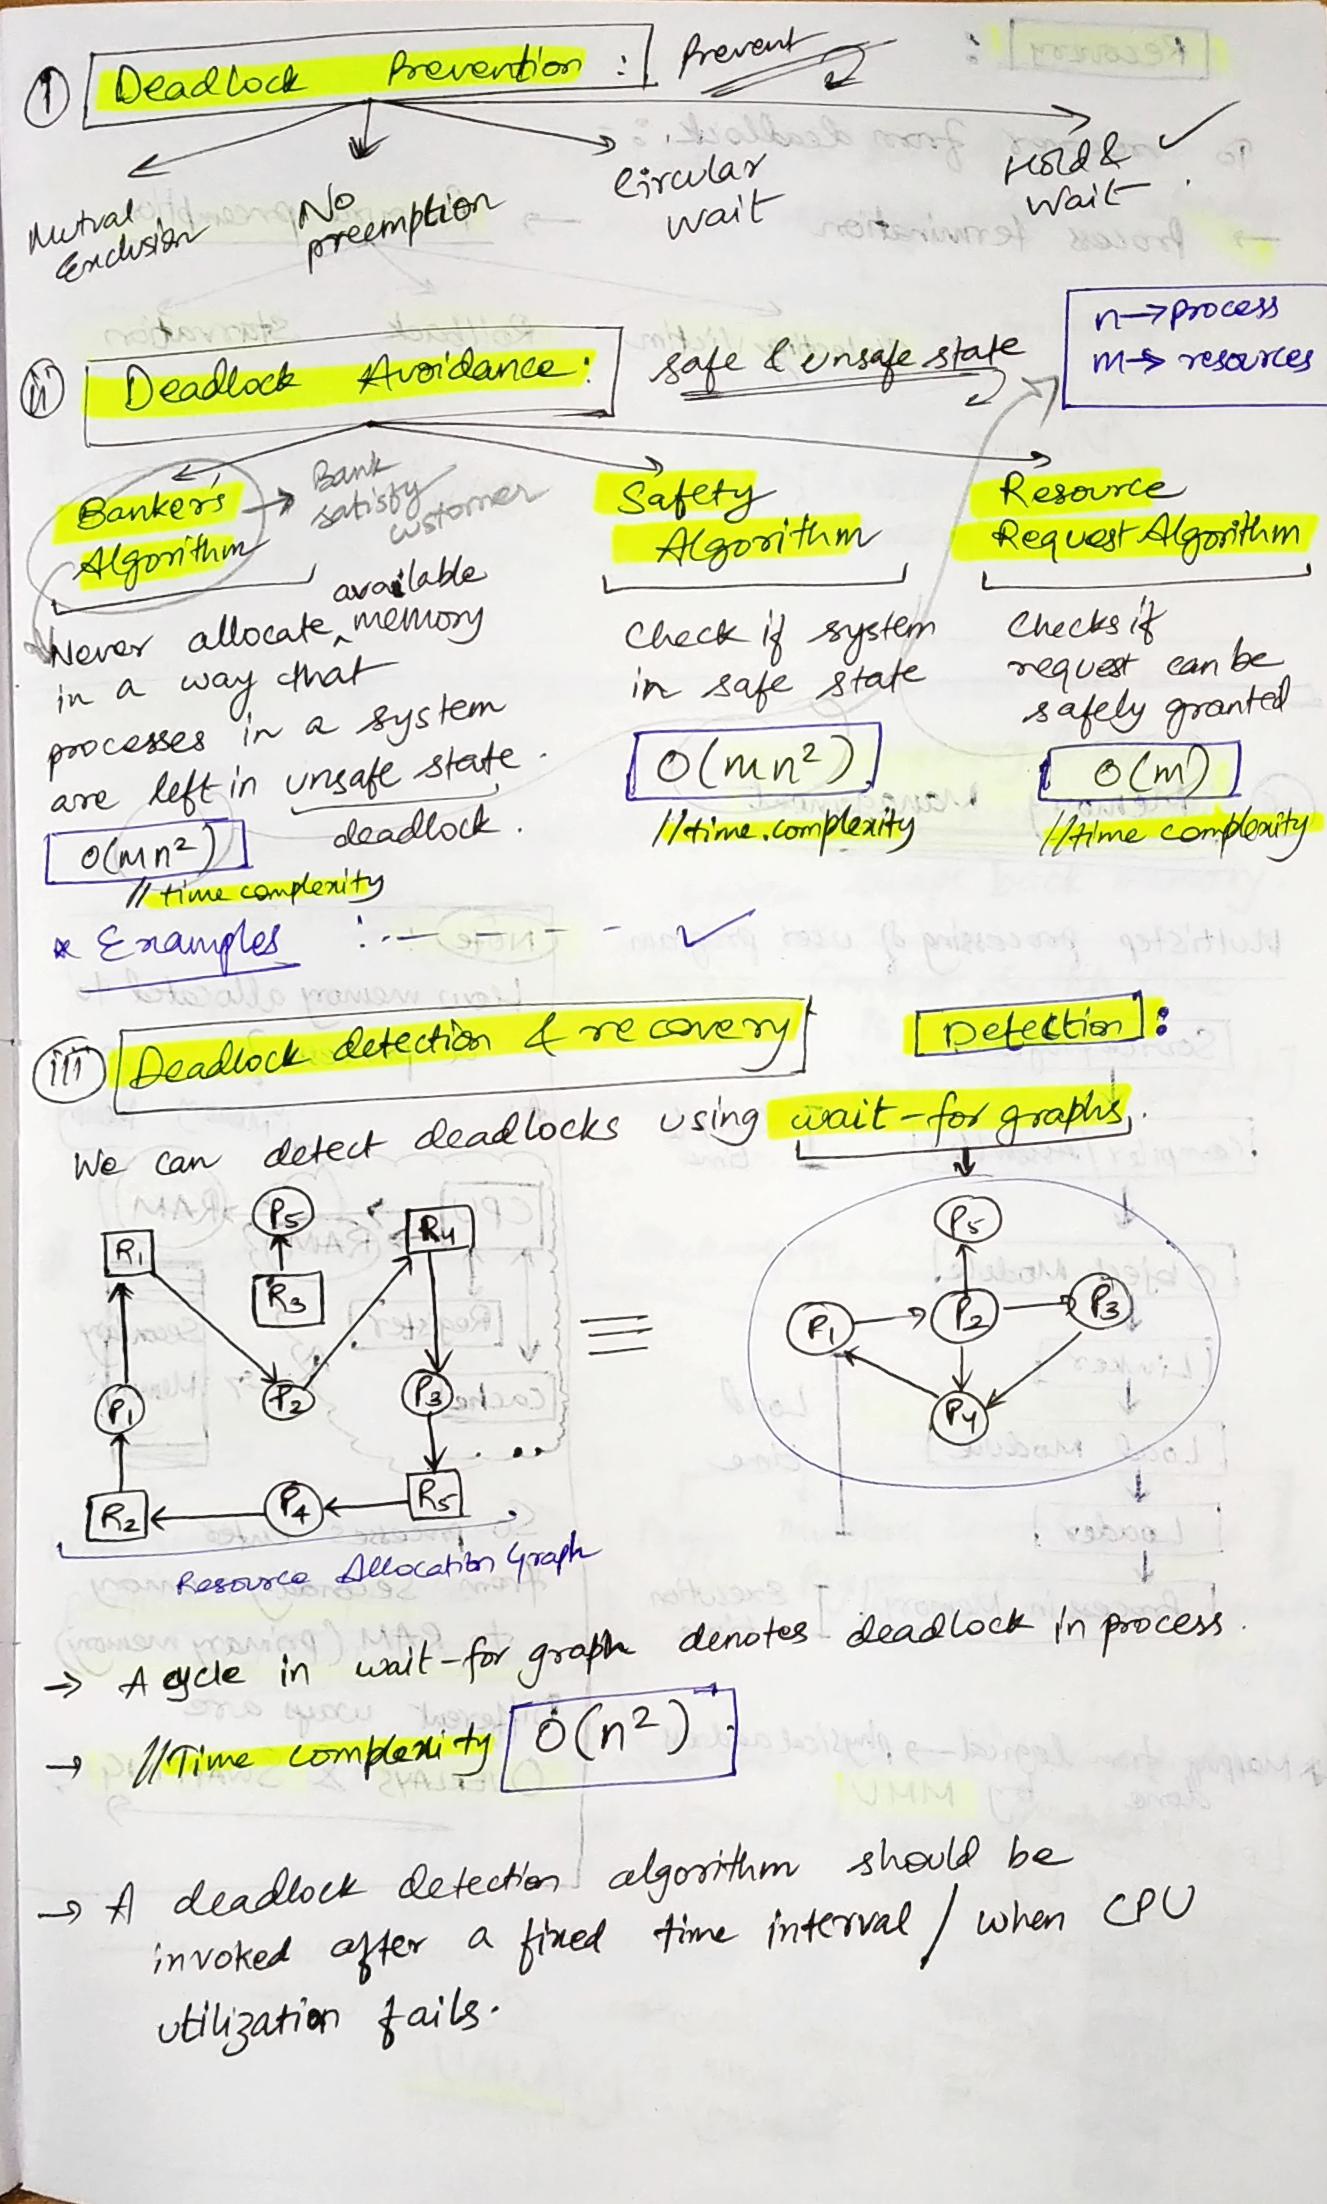 i Deadlock Prevention : Prevent
Mutual Exclusion
No preemption
Circular wait
Hold & wait
ii Deadlock Avoidance : safe & unsafe state
n → process
m → resources
Banker's Algorithm → Bank satisfy customer
Never allocate available memory
in a way that
processes in a system
are left in unsafe state.
deadlock.
O(mn²)
// time complexity
Safety
Algorithm
Check if system
in safe state
O(mn²)
// time complexity
Resource
Request Algorithm
Checks if
request can be
safely granted
O(m)
// time complexity
* Examples : - - - -
iii Deadlock detection & recovery Detection :
We can detect deadlocks using wait-for graphs.
R1 P5 R4
R3
P1 P2 P3
R2 P4 R5
Resource Allocation Graph
≡
P5
P1 P2 P3
P4
→ A cycle in wait-for graph denotes deadlock in process.
→ // Time complexity O(n²)
→ A deadlock detection algorithm should be
invoked after a fixed time interval / when CPU
utilization fails.